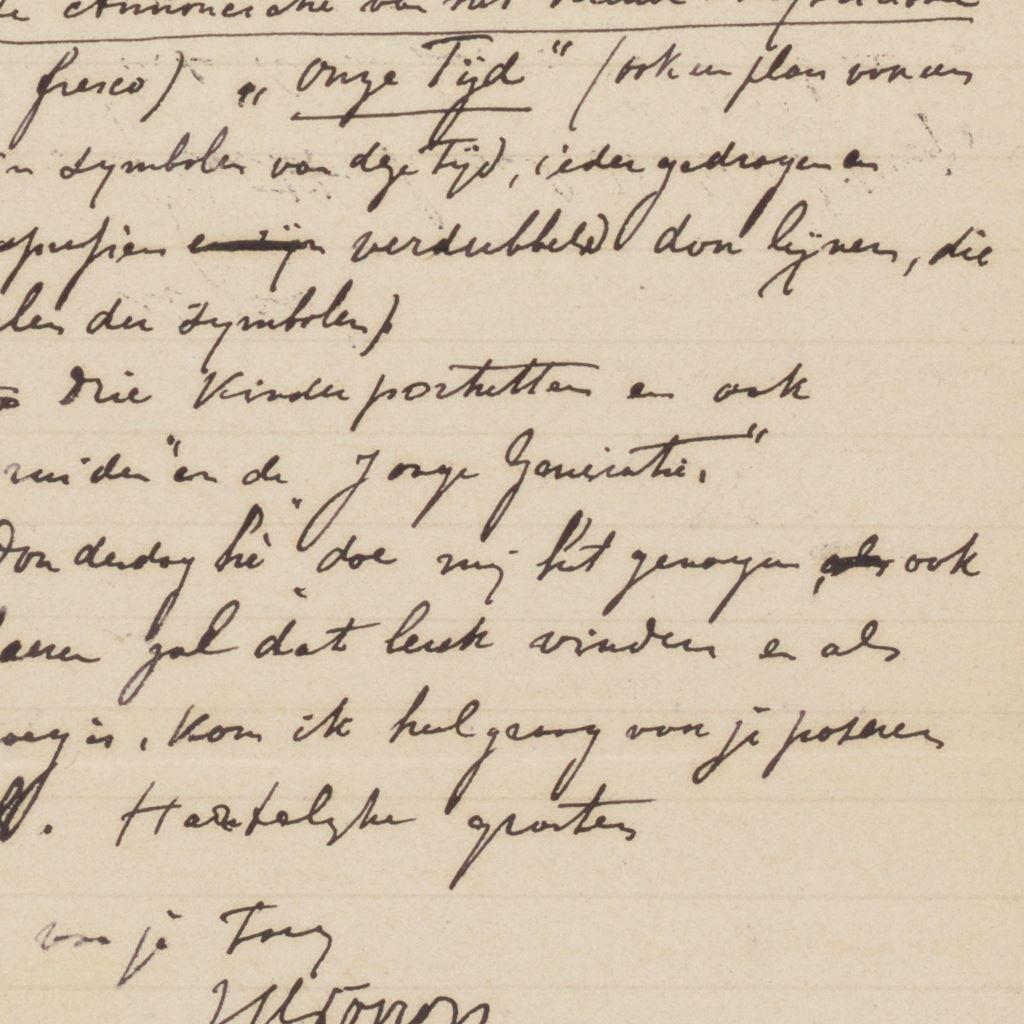 de Annonciatie van het nieuwe
fresco) „Onze Tijd" (ook een plan van een
in symbolen van deze Tijd, ieder gedragen en
verdubbeld don lijnen, die
len der symbolen)
Drie Kinderportretten en ook
ruiden" en de „Jonge Generatie."
Donderdag bie doe mij het genoegen ook
zal dat leuk vinden en als
is, kom ik heel graag voor je poseren
. Hartelijke groeten
van je Tony